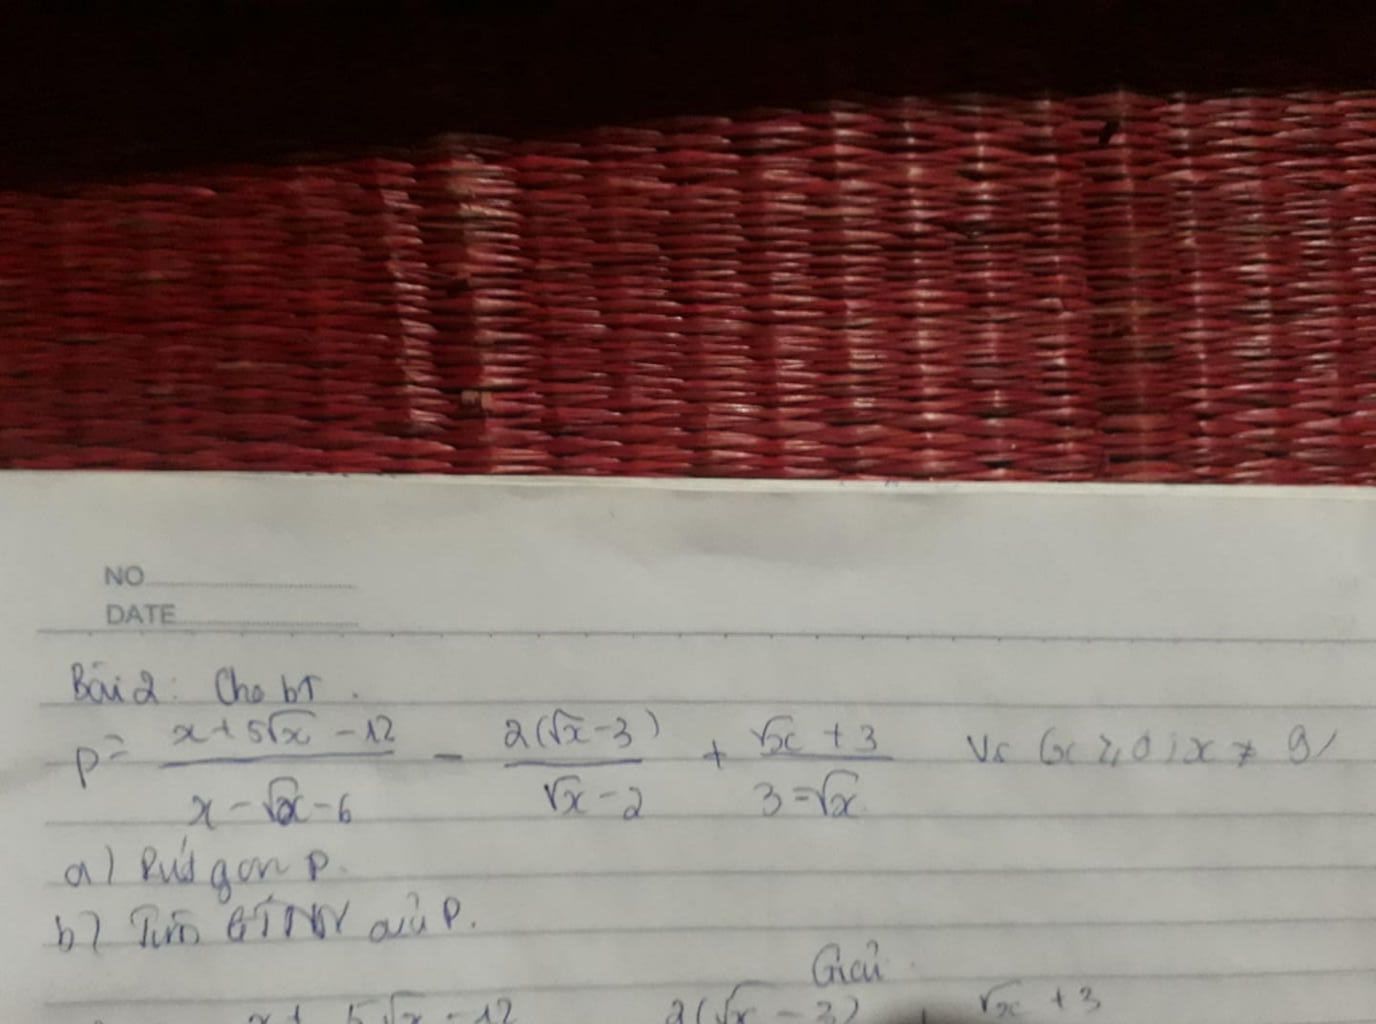 NO
DATE
Bài 2: Cho bt.
P = \frac{x + 5\sqrt{x} - 12}{x - \sqrt{x} - 6} - \frac{2(\sqrt{x} - 3)}{\sqrt{x} - 2} + \frac{\sqrt{x} + 3}{3 - \sqrt{x}} Vs x ≥ 0; x ≠ 9
a) Rút gọn P.
b) Tìm GTNN của P.
Giải
x + 5\sqrt{x} - 12 2(\sqrt{x} - 3) + \sqrt{x} + 3